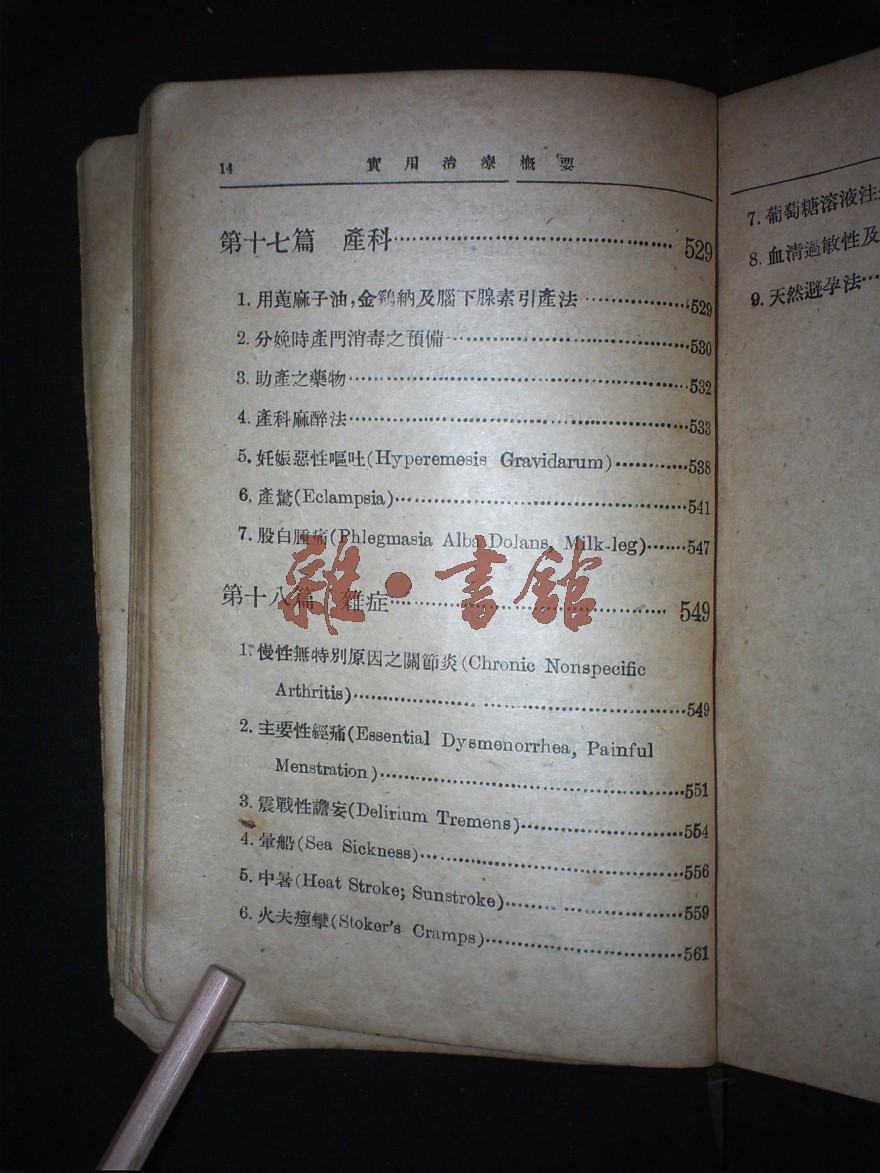 14 實用治療概要
第十七篇 產科 529
1. 用蓖麻子油,金鷄納及腦下腺素引產法 529
2. 分娩時產門消毒之預備 530
3. 助產之藥物 532
4. 產科麻醉法 533
5. 妊娠惡性嘔吐(Hyperemesis Gravidarum) 538
6. 產驚(Eclampsia) 541
7. 股白腫痛(Phlegmasia Alba Dolans, Milk-leg) 547
第十八篇 雜症 549
1. 慢性無特別原因之關節炎(Chronic Nonspecific
Arthritis) 549
2. 主要性經痛(Essential Dysmenorrhea, Painful
Menstration) 551
3. 震戰性譫妄(Delirium Tremens) 554
4. 暈船(Sea Sickness) 556
5. 中暑(Heat Stroke; Sunstroke) 559
6. 火夫痙攣(Stoker's Cramps) 561
雜·書館
7. 葡萄糖溶液注
8. 血清過敏性及
9. 天然避孕法